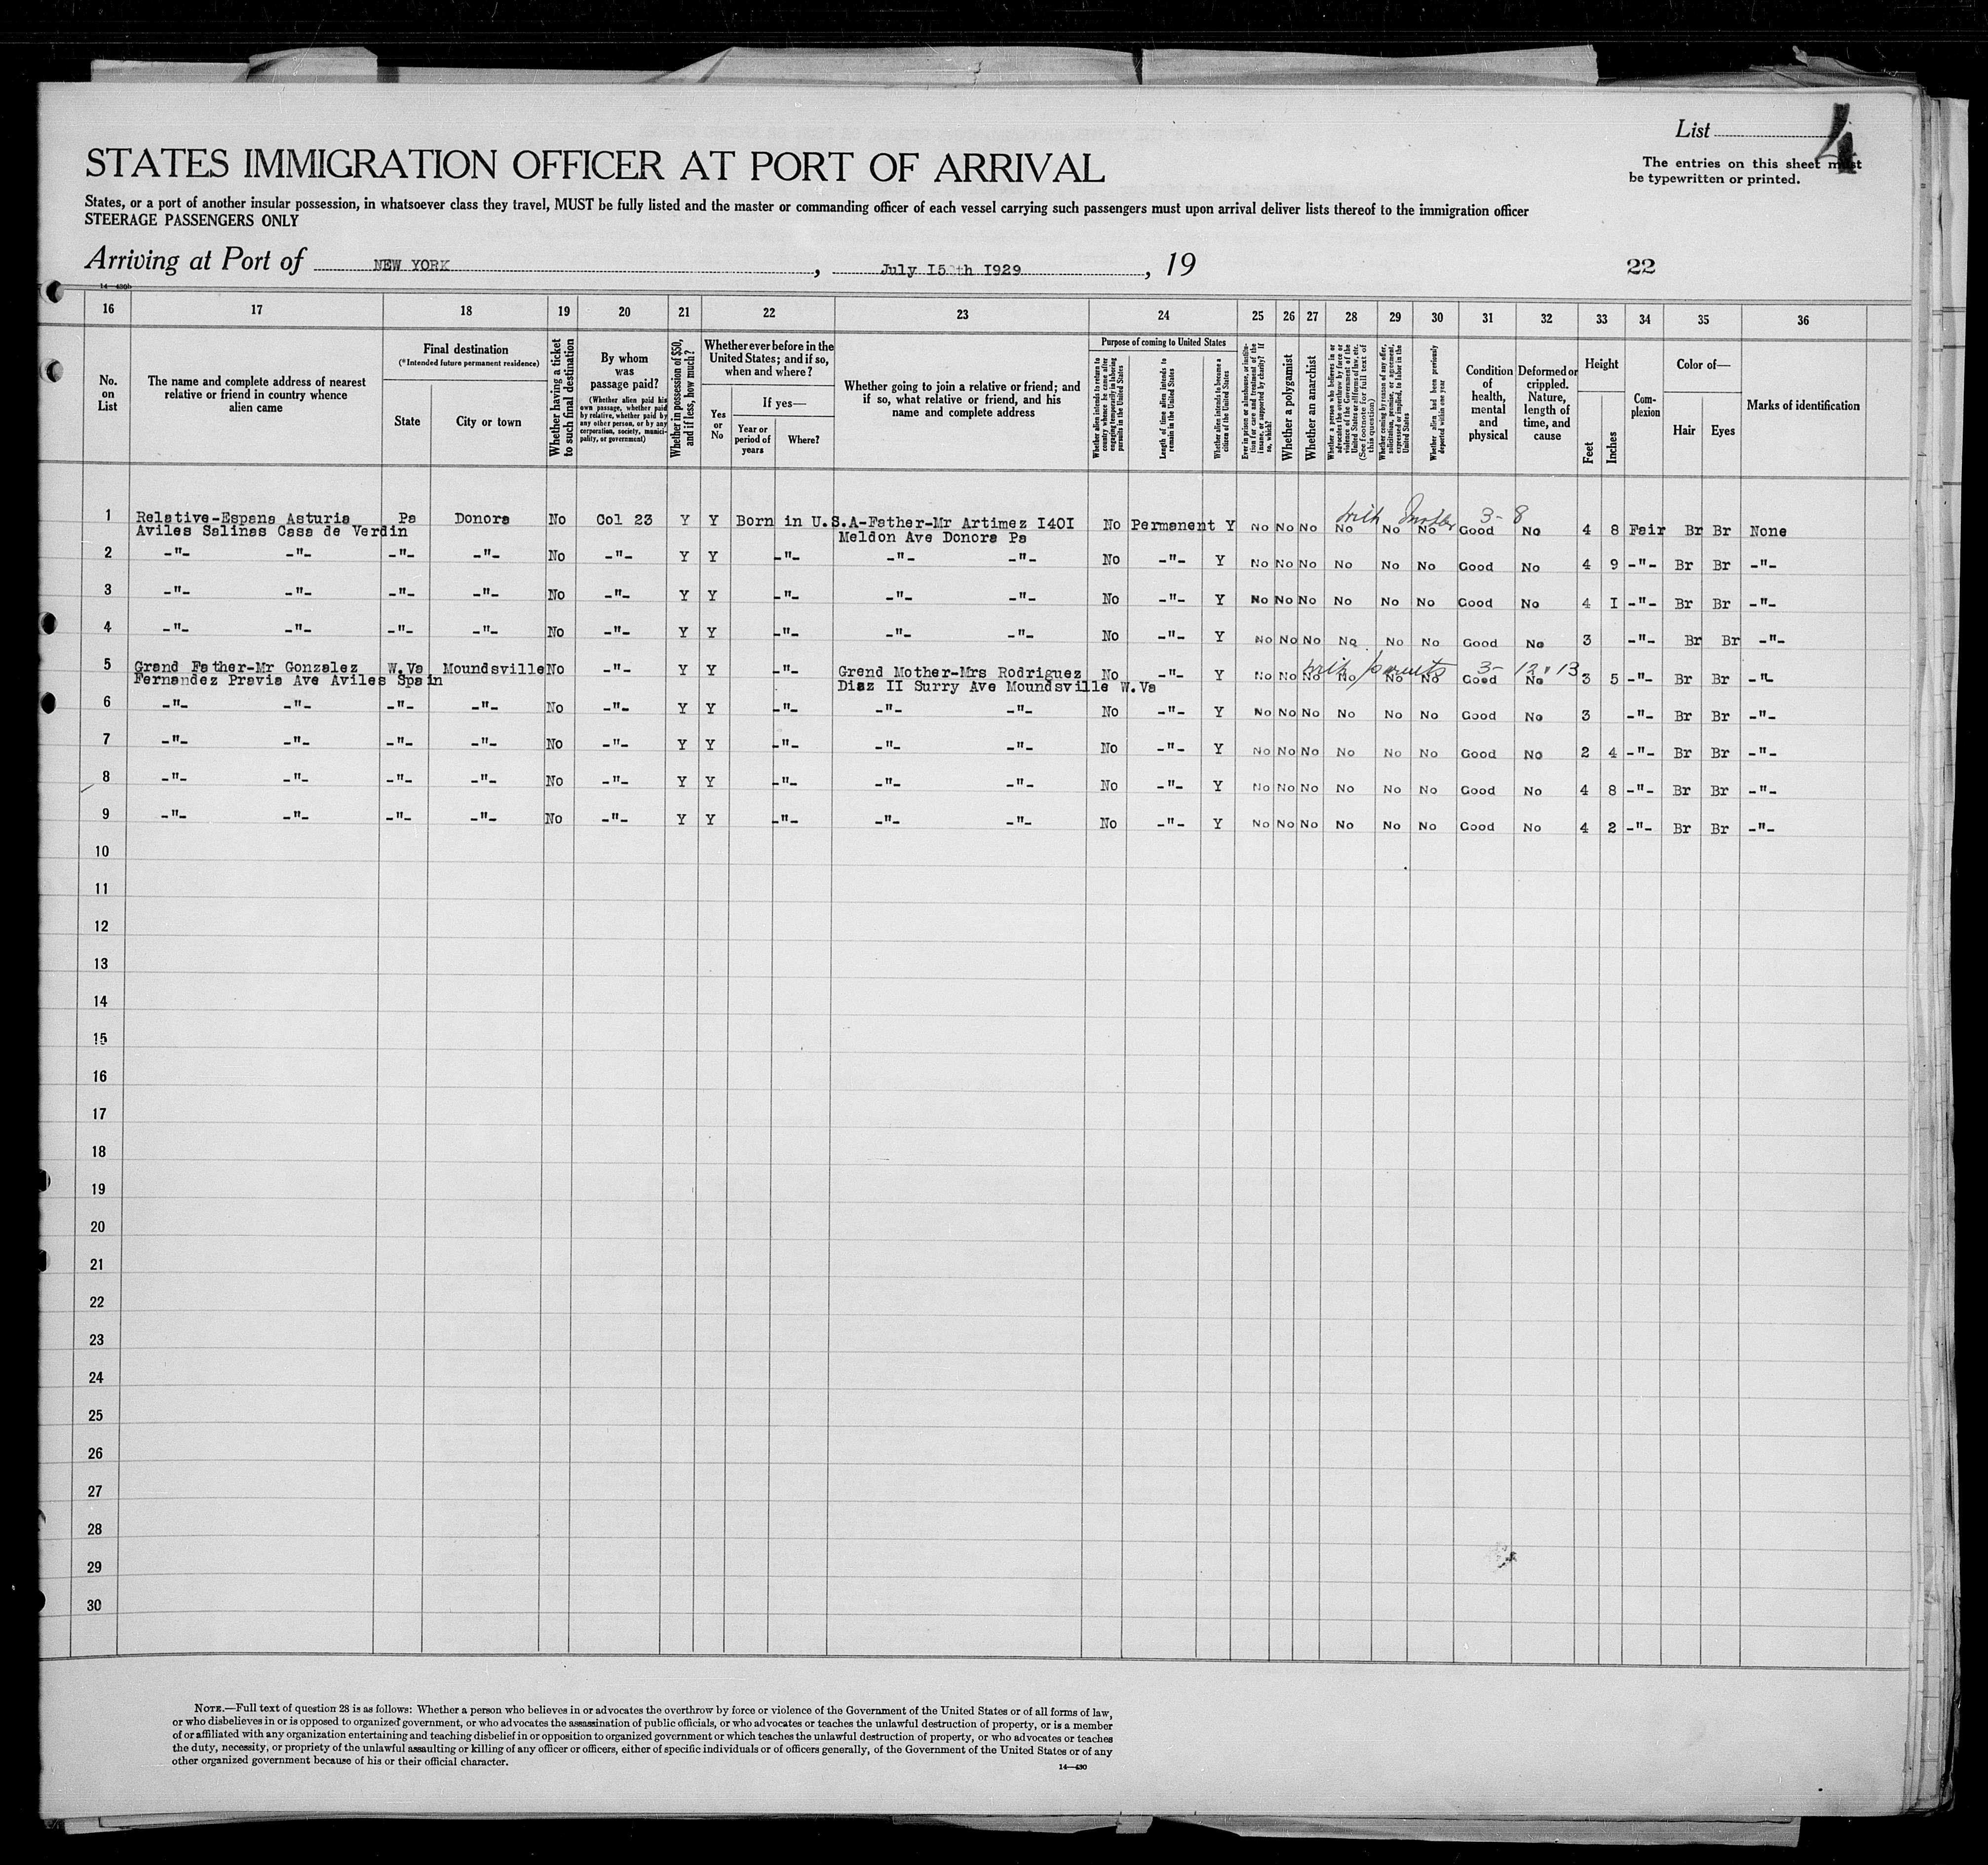 List 4
The entries on this sheet must
be typewritten or printed.
STATES IMMIGRATION OFFICER AT PORT OF ARRIVAL
States, or a port of another insular possession, in whatsoever class they travel, MUST be fully listed and the master or commanding officer of each vessel carrying such passengers must upon arrival deliver lists thereof to the immigration officer
STEERAGE PASSENGERS ONLY
Arriving at Port of NEW YORK , July I5th I929 , 19
22
14—430b
16 17 18 19 20 21 22 23 24 25 26 27 28 29 30 31 32 33 34 35 36
No. on List
The name and complete address of nearest relative or friend in country whence alien came
Final destination
(*Intended future permanent residence)
State
City or town
Whether having a ticket to such final destination
By whom was passage paid?
(Whether alien paid his own passage, whether paid by relative, whether paid by any other person, or by any corporation, society, municipality, or government)
Whether in possession of $50, and if less, how much?
Whether ever before in the United States; and if so, when and where?
Yes or No
If yes—
Year or period of years
Where?
Whether going to join a relative or friend; and if so, what relative or friend, and his name and complete address
Purpose of coming to United States
Whether alien intends to return to country whence he came after engaging temporarily in laboring pursuits in the United States
Length of time alien intends to remain in the United States
Whether alien intends to become a citizen of the United States
Ever in prison or almshouse, or institution for care and treatment of the insane, or supported by charity? If so, which?
Whether a polygamist
Whether an anarchist
Whether a person who believes in or advocates the overthrow by force or violence of the Government of the United States or all forms of law, etc. (See footnote for full text of this question)
Whether coming by reason of any offer, solicitation, promise, or agreement, expressed or implied, to labor in the United States
Whether alien had been previously deported within one year
Condition of health, mental and physical
Deformed or crippled. Nature, length of time, and cause
Height
Feet
Inches
Complexion
Color of—
Hair
Eyes
Marks of identification
with mother 3-8
1 Relative-Espana Asturia Pa Donora No Col 23 Y Y Born in U.S.A-Father-Mr Artimez I40I No Permanent Y No No No No No No Good No 4 8 Fair Br Br None
Aviles Salinas Casa de Verdin Meldon Ave Donora Pa
2 -"- -"- -"- -"- No -"- Y Y -"- -"- -"- No -"- Y No No No No No No Good No 4 9 -"- Br Br -"-
3 -"- -"- -"- -"- No -"- Y Y -"- -"- -"- No -"- Y No No No No No No Good No 4 I -"- Br Br -"-
4 -"- -"- -"- -"- No -"- Y Y -"- -"- -"- No -"- Y No No No No No No Good No 3 -"- Br Br -"-
with parents 3- 12 & 13
5 Grand Father-Mr Gonzalez W.Va Moundsville No -"- Y Y -"- Grend Mother-Mrs Rodriguez No -"- Y No No No No No No Good No 3 5 -"- Br Br -"-
Fernandez Pravia Ave Aviles Spain Diaz II Surry Ave Moundsville W.Va
6 -"- -"- -"- -"- No -"- Y Y -"- -"- -"- No -"- Y No No No No No No Good No 3 -"- Br Br -"-
7 -"- -"- -"- -"- No -"- Y Y -"- -"- -"- No -"- Y No No No No No No Good No 2 4 -"- Br Br -"-
8 -"- -"- -"- -"- No -"- Y Y -"- -"- -"- No -"- Y No No No No No No Good No 4 8 -"- Br Br -"-
9 -"- -"- -"- -"- No -"- Y Y -"- -"- -"- No -"- Y No No No No No No Good No 4 2 -"- Br Br -"-
10
11
12
13
14
15
16
17
18
19
20
21
22
23
24
25
26
27
28
29
30
NOTE.—Full text of question 28 is as follows: Whether a person who believes in or advocates the overthrow by force or violence of the Government of the United States or of all forms of law,
or who disbelieves in or is opposed to organized government, or who advocates the assassination of public officials, or who advocates or teaches the unlawful destruction of property, or is a member
of or affiliated with any organization entertaining and teaching disbelief in or opposition to organized government or which teaches the unlawful destruction of property, or who advocates or teaches
the duty, necessity, or propriety of the unlawful assaulting or killing of any officer or officers, either of specific individuals or of officers generally, of the Government of the United States or of any
other organized government because of his or their official character.
14—430